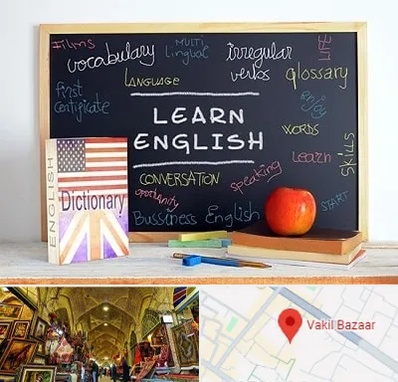 Films
vocabulary
MULTI
lingual
irregular
verbs
LIFE
glossary
LANGUAGE
first
Certificate
enjoy
LEARN
ENGLISH
WORDS
Learn
SKILLS
CONVERSATION
speaking
opportunity
Bussiness English
START
ENGLISH
Dictionary
Vakil Bazaar